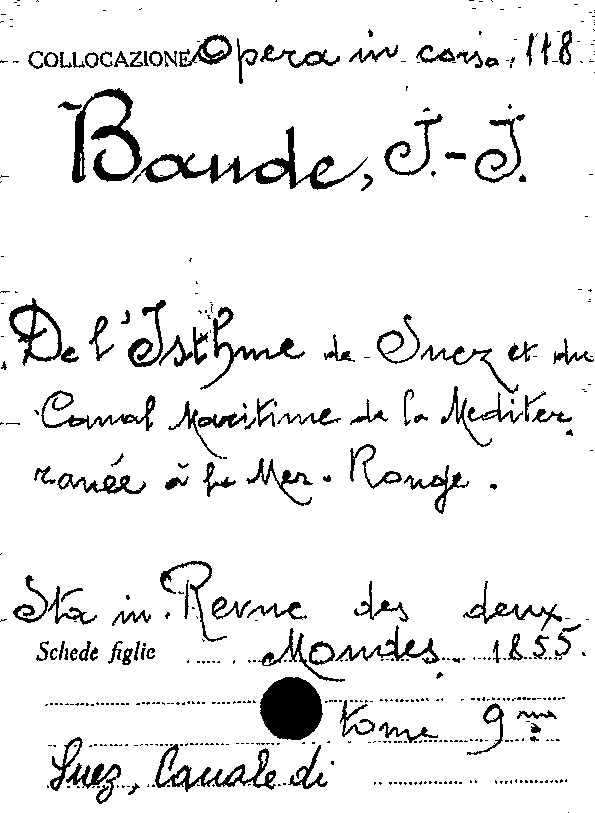 COLLOCAZIONE Opera in corso, 118
Baude, J.-J.
De l'Isthme de Suez et du
Canal Maritime de la Mediter
ranée à la Mer Rouge.
Sta in Revue des deux
Schede figlie Mondes. 1855.
tome 9me
Suez, Canale di